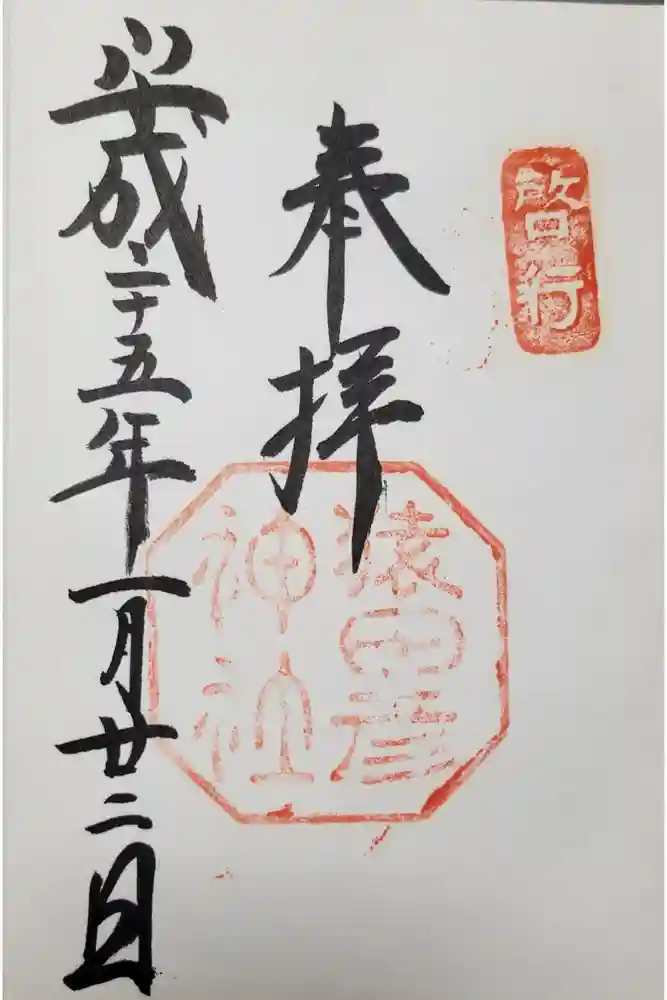 啓行
奉拝
猿田彦
神社
平成二十五年一月廿二日